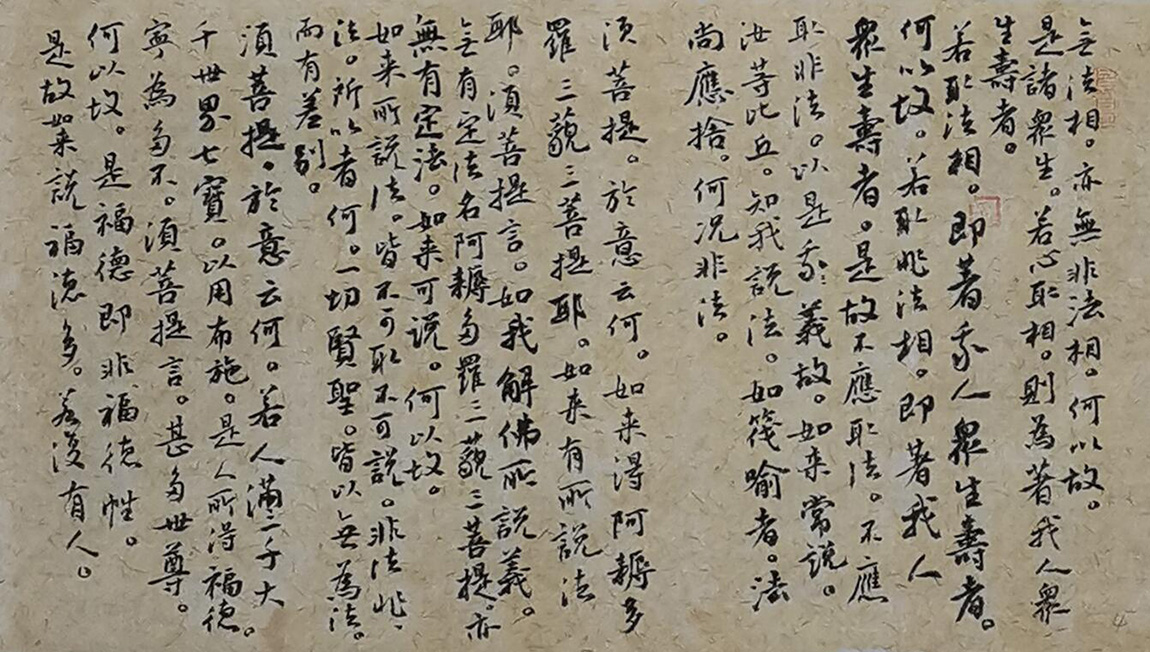 无法相。亦無非法相。何以故。
是諸衆生。若心取相。則為著我人衆
生壽者。
若取法相。即著我人衆生壽者。
何以故。若取非法相。即著我人
衆生壽者。是故不應取法。不應
取非法。以是義故。如来常説。
汝等比丘。知我説法。如筏喻者。法
尚應捨。何况非法。
須菩提。於意云何。如来得阿耨多
羅三藐三菩提耶。如来有所説法
耶。須菩提言。如我解佛所説義。
无有定法名阿耨多羅三藐三菩提。亦
無有定法。如来可説。何以故。
如来所説法。皆不可取不可説。非法非、
法。所以者何。一切賢聖。皆以无為法。
而有差别。
須菩提。於意云何。若人滿三千大
千世界七寶。以用布施。是人所得福德。
寧為多不。須菩提言。甚多世尊。
何以故。是福德即非福德性。
是故如来説福德多。若復有人。